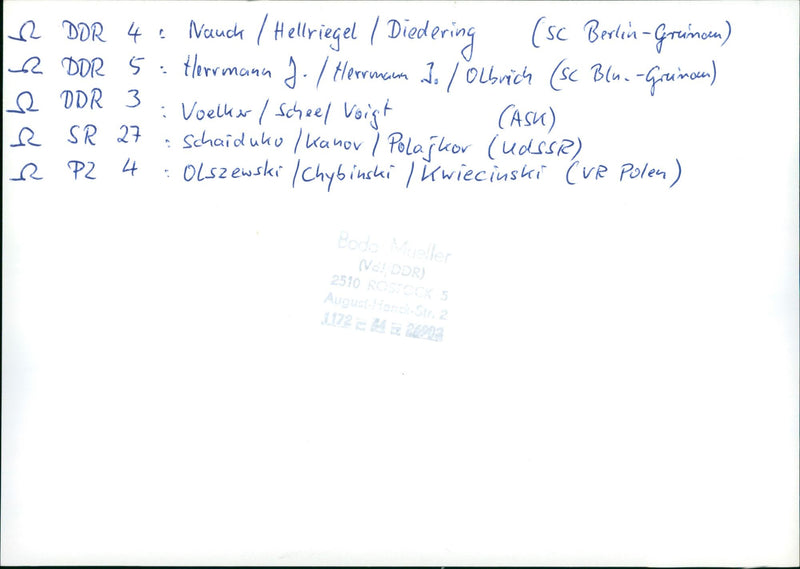 Ω DDR 4 : Nauck / Hellriegel / Diedering (SC Berlin-Grünau)
Ω DDR 5 : Herrmann J. / Herrmann J. / Olbrich (SC Bln.-Grünau)
Ω DDR 3 : Voelker / Scheel / Voigt (ASK)
Ω SR 27 : Schaiduko / Kanov / Polajkov (UdSSR)
Ω PZ 4 : Olszewski / Chybinski / Kwiecinski (VR Polen)
Bodo Mueller
(VdJ/DDR)
2510 ROSTOCK 5
Str. 2